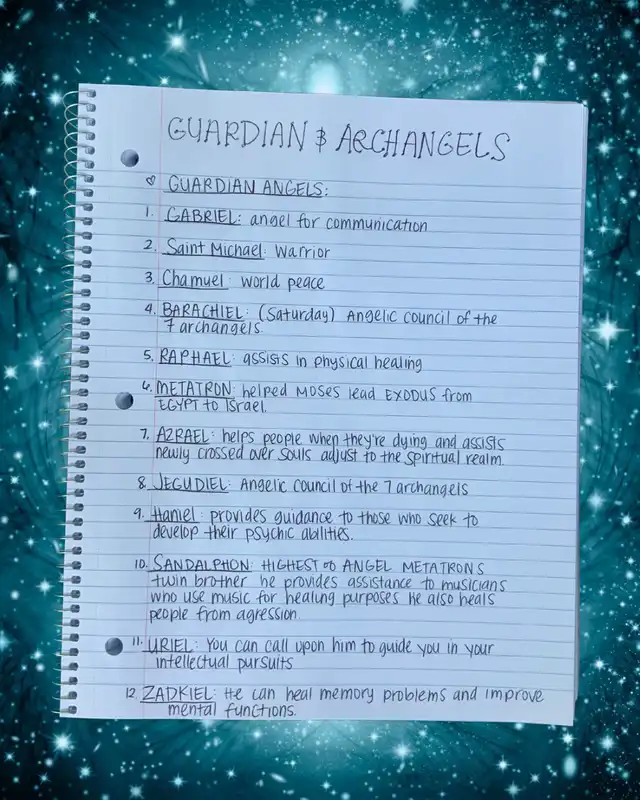 GUARDIAN & ARCHANGELS
♡ GUARDIAN ANGELS:
1. GABRIEL: angel for communication
2. Saint Michael: Warrior
3. Chamuel: world peace
4. BARACHIEL: (Saturday) Angelic council of the
7 archangels.
5. RAPHAEL: assists in physical healing
6. METATRON: helped MOSES lead EXODUS from
EGYPT to Israel.
7. AZRAEL: helps people when they're dying and assists
newly crossed over souls adjust to the spiritual realm.
8. JEGUDIEL: Angelic council of the 7 archangels
9. Haniel: provides guidance to those who seek to
develop their psychic abilities.
10. SANDALPHON: HIGHEST OF ANGEL METATRONS
twin brother he provides assistance to musicians
who use music for healing purposes He also heals
people from agression
11. URIEL: You can call upon him to guide you in your
intellectual pursuits
12. ZADKIEL: He can heal memory problems and improve
mental functions.